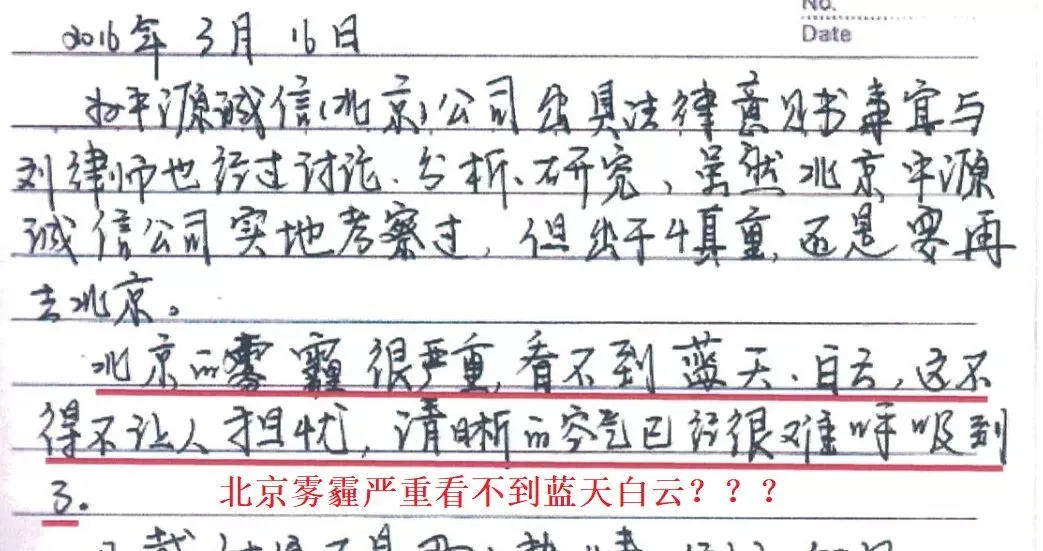 No.
Date
2016年3月16日
为平源诚信(北京)公司出具法律意见书事宜与
刘律师也经过讨论、分析、研究，虽然北京平源
诚信公司实地考察过，但出于慎重，还是要再
去北京。
北京的雾霾很严重，看不到蓝天、白云，这不
得不让人担忧，清晰的空气已经很难呼吸到
了。
北京雾霾严重看不到蓝天白云？？？